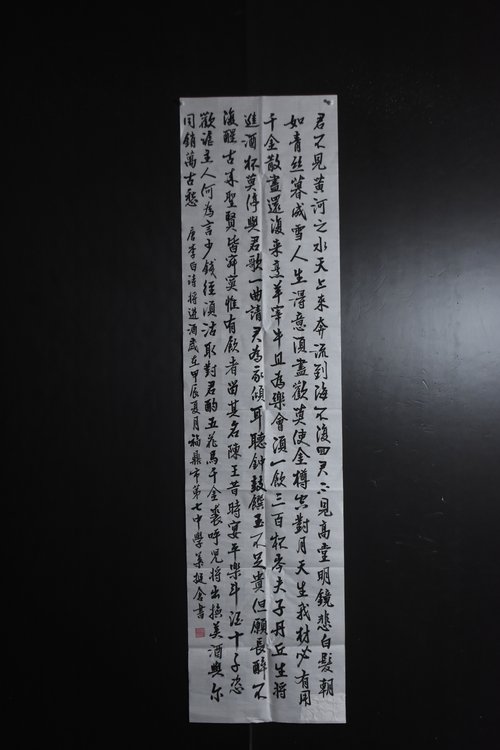 君不見黃河之水天上來奔流到海不復回君不見高堂明鏡悲白髮朝
如青絲暮成雪人生得意須盡歡莫使金樽空對月天生我材必有用
千金散盡還復來烹羊宰牛且為樂會須一飲三百杯岑夫子丹丘生將
進酒杯莫停與君歌一曲請君為我傾耳聽鐘鼓饌玉不足貴但願長醉不
復醒古來聖賢皆寂寞惟有飲者留其名陳王昔時宴平樂斗酒十千恣
歡謔主人何為言少錢徑須沽取對君酌五花馬千金裘呼兒將出換美酒與爾
同銷萬古愁
唐李白詩將進酒歲在甲辰夏月福鼎市第七中學書